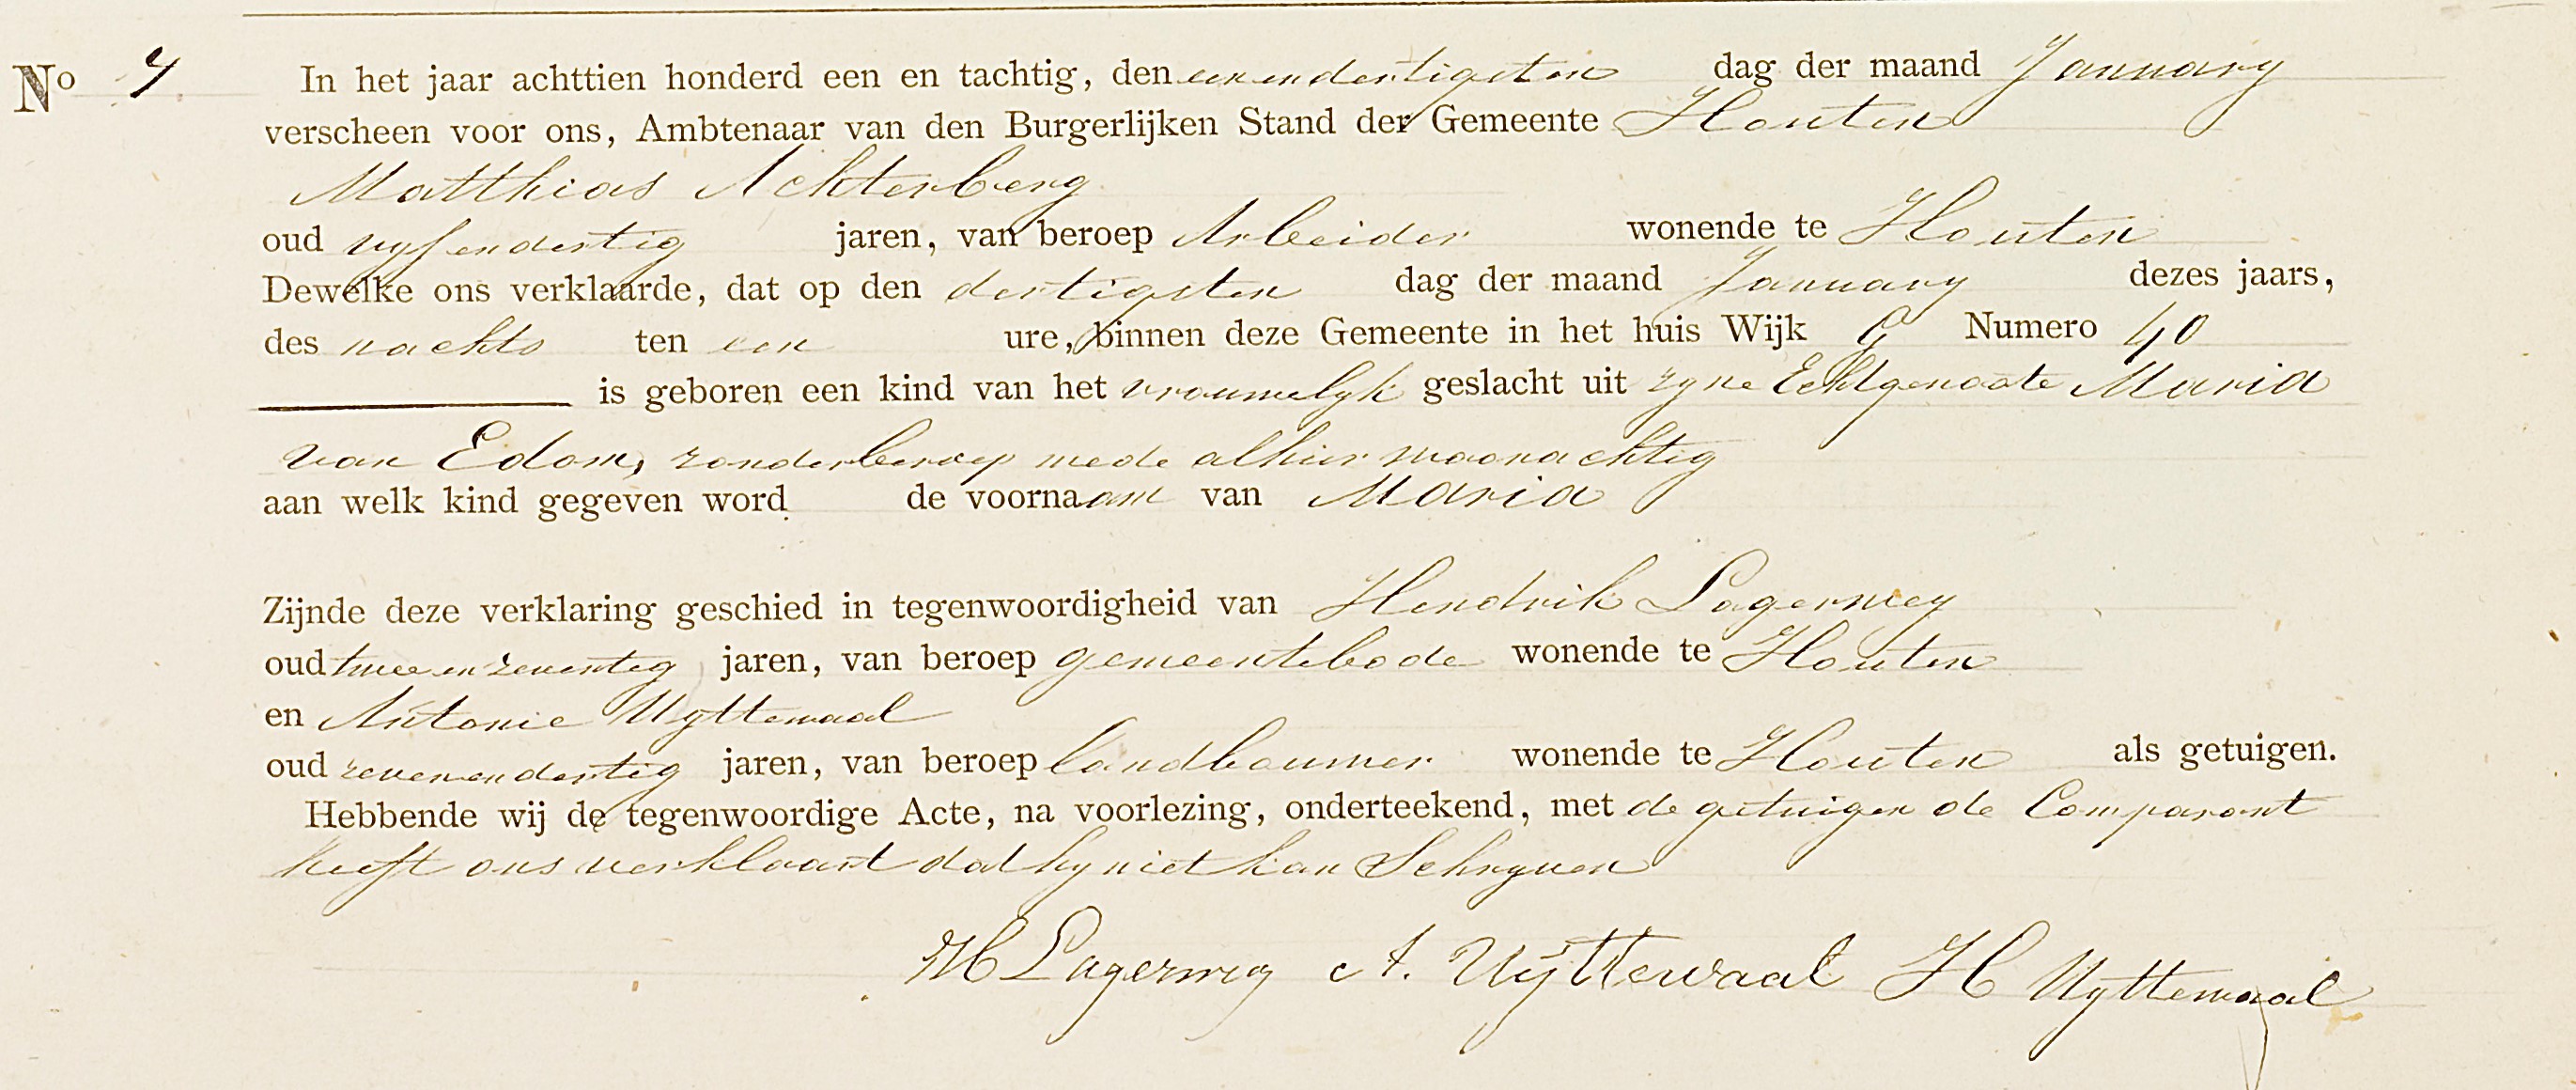 No 7 In het jaar achttien honderd een en tachtig, den een en dertigsten dag der maand January
verscheen voor ons, Ambtenaar van den Burgerlijken Stand der Gemeente Houten
Matthias Achterberg
oud vyf en dertig jaren, van beroep Arbeider wonende te Houten
Dewelke ons verklaarde, dat op den dertigsten dag der maand January dezes jaars,
des nachts ten een ure, binnen deze Gemeente in het huis Wijk G Numero 40
is geboren een kind van het vrouwelyk geslacht uit zyne Echtgenoote Maria
van Edom, zonder beroep mede alhier woonachtig
aan welk kind gegeven word de voornaam van Maria
Zijnde deze verklaring geschied in tegenwoordigheid van Hendrik Lagerwey
oud twee en zeventig jaren, van beroep gemeentebode wonende te Houten
en Antonie Uyttewaal
oud zeven en dertig jaren, van beroep landbouwer wonende te Houten als getuigen.
Hebbende wij de tegenwoordige Acte, na voorlezing, onderteekend, met de getuigen de Comparant
heeft ons verklaart dat hy niet kan Schryven
H Lagerweg A. Uyttewaal H Uyttewaal